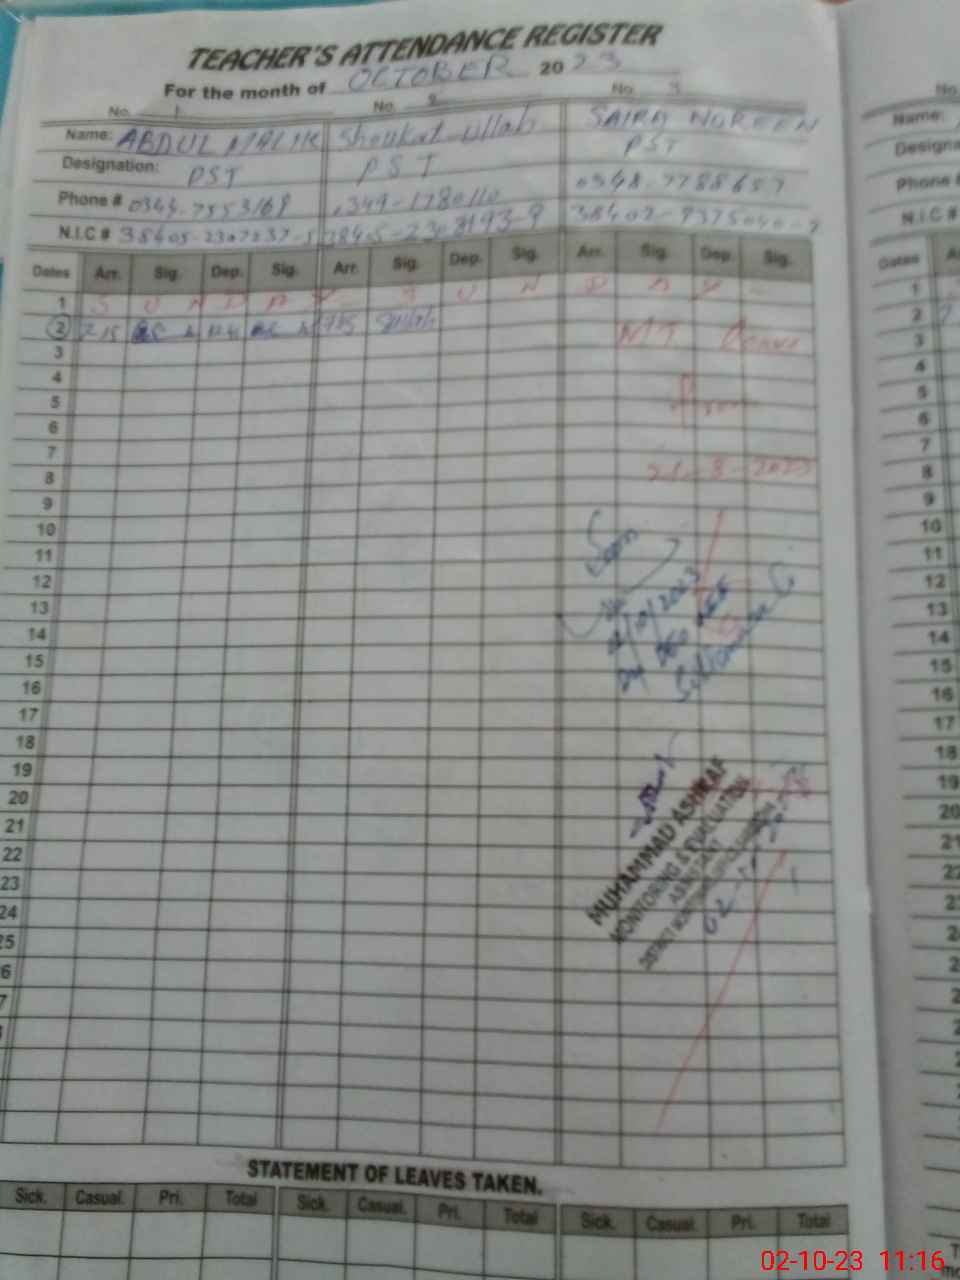 TEACHER'S ATTENDANCE REGISTER
For the month of OCTOBER 2023
No. 1 No. 2 No. 3
Name: ABDUL MALIK Shoukat ullah SAIRA NOREEN
Designation: PST PST PST
Phone # 0344-7553169 0348-7788657
N.I.C #
Dates Arr. Sig. Dep. Sig. Arr. Sig. Dep. Sig. Arr. Sig. Dep. Sig.
1 S U N D A Y - S U N D A Y -
2 715 715
3 Leave
4
5 From
6
7
8 21-8-2023
9
10
11
12
13
14
15
16
17
18
19
20
21
22
23
24
25
Seen
02/10/2023
Dy DEO
MUHAMMAD ASHRAF
MONITORING & EVALUATION
ASSISTANT
STATEMENT OF LEAVES TAKEN.
Sick. Casual. Pri. Total Sick. Casual. Pri. Total Sick. Casual. Pri. Total
No.
Name:
Designa
Phone #
N.I.C #
Dates
1
2
3
4
5
6
7
8
9
10
11
12
13
14
15
16
17
18
19
20
02-10-23 11:16